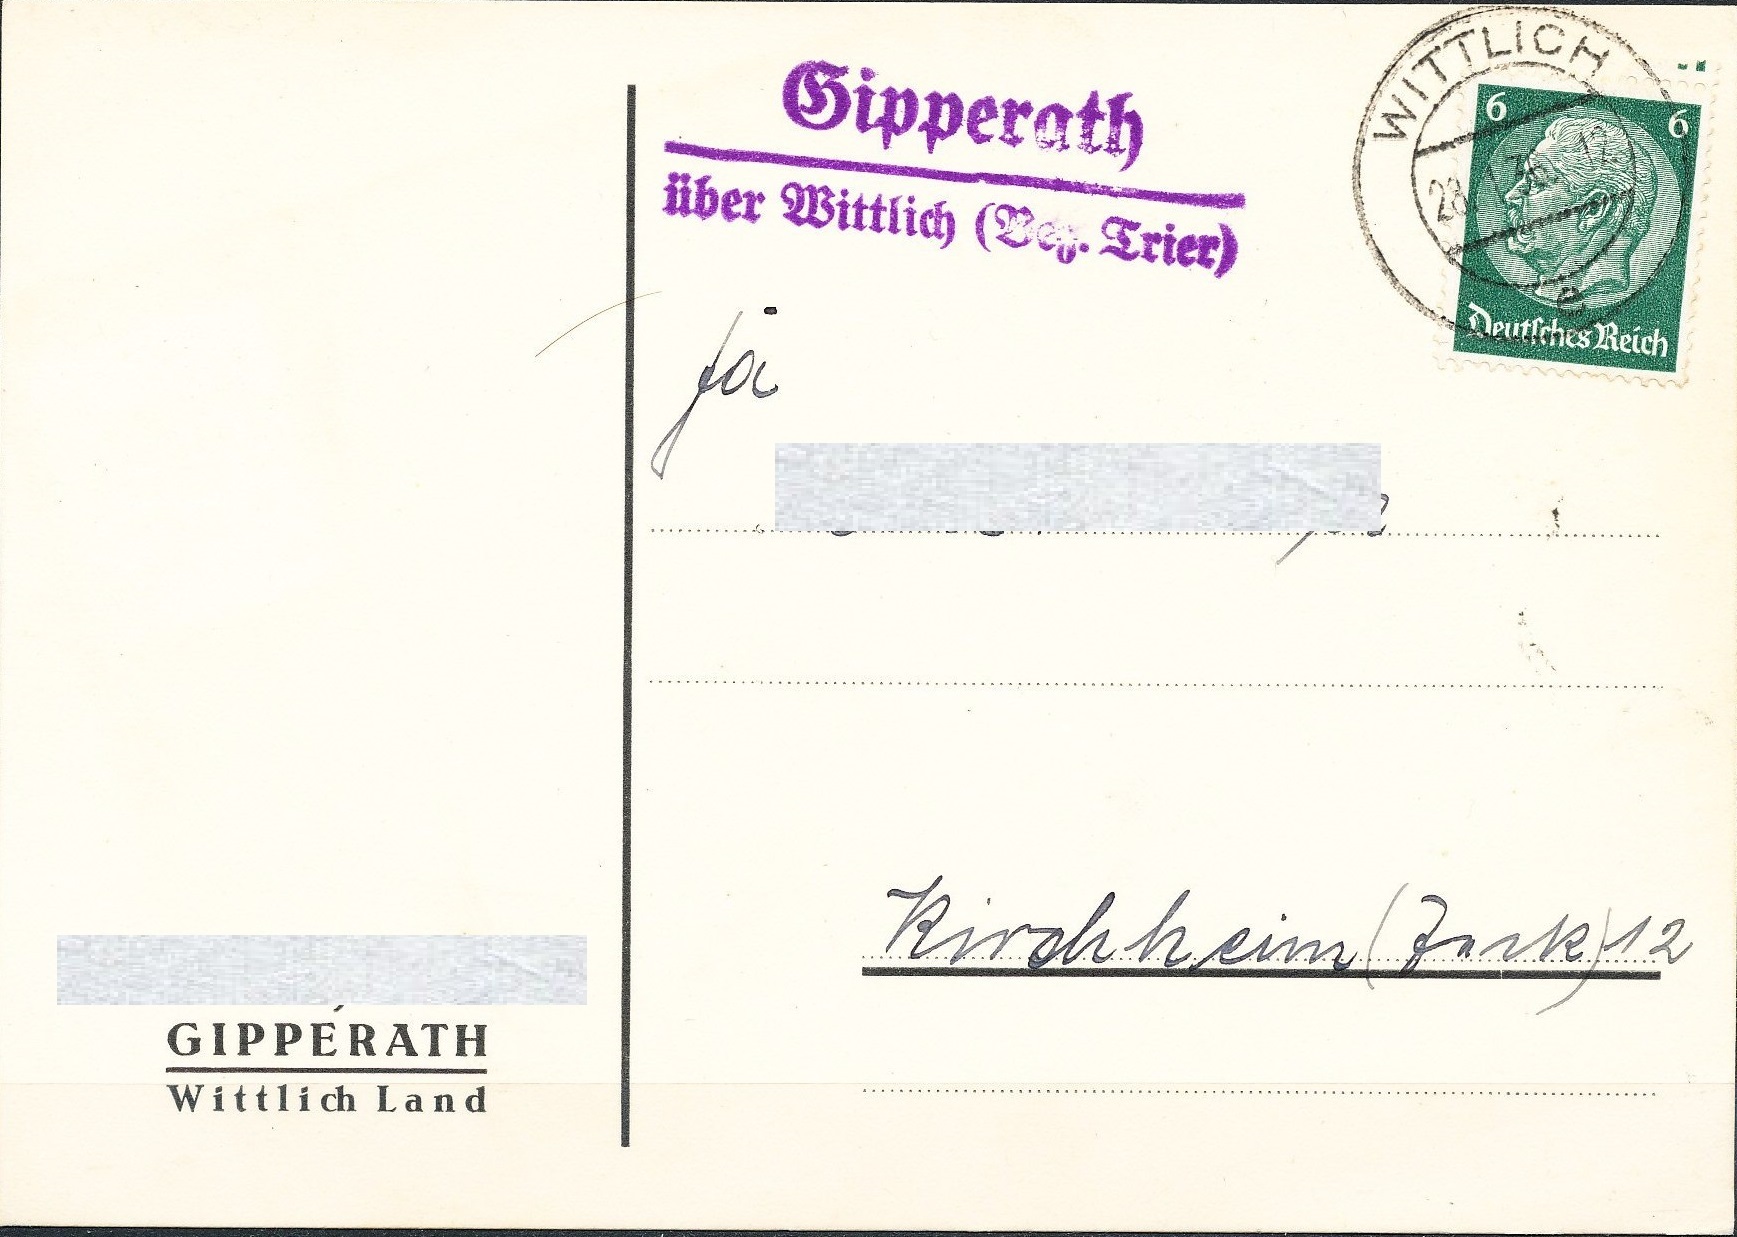 Gipperath
über Wittlich (Bez. Trier)
WITTLICH
28. 12
e
6 6
Deutsches Reich
Fa
Kirchheim (Teck) 12
GIPPERATH
Wittlich Land